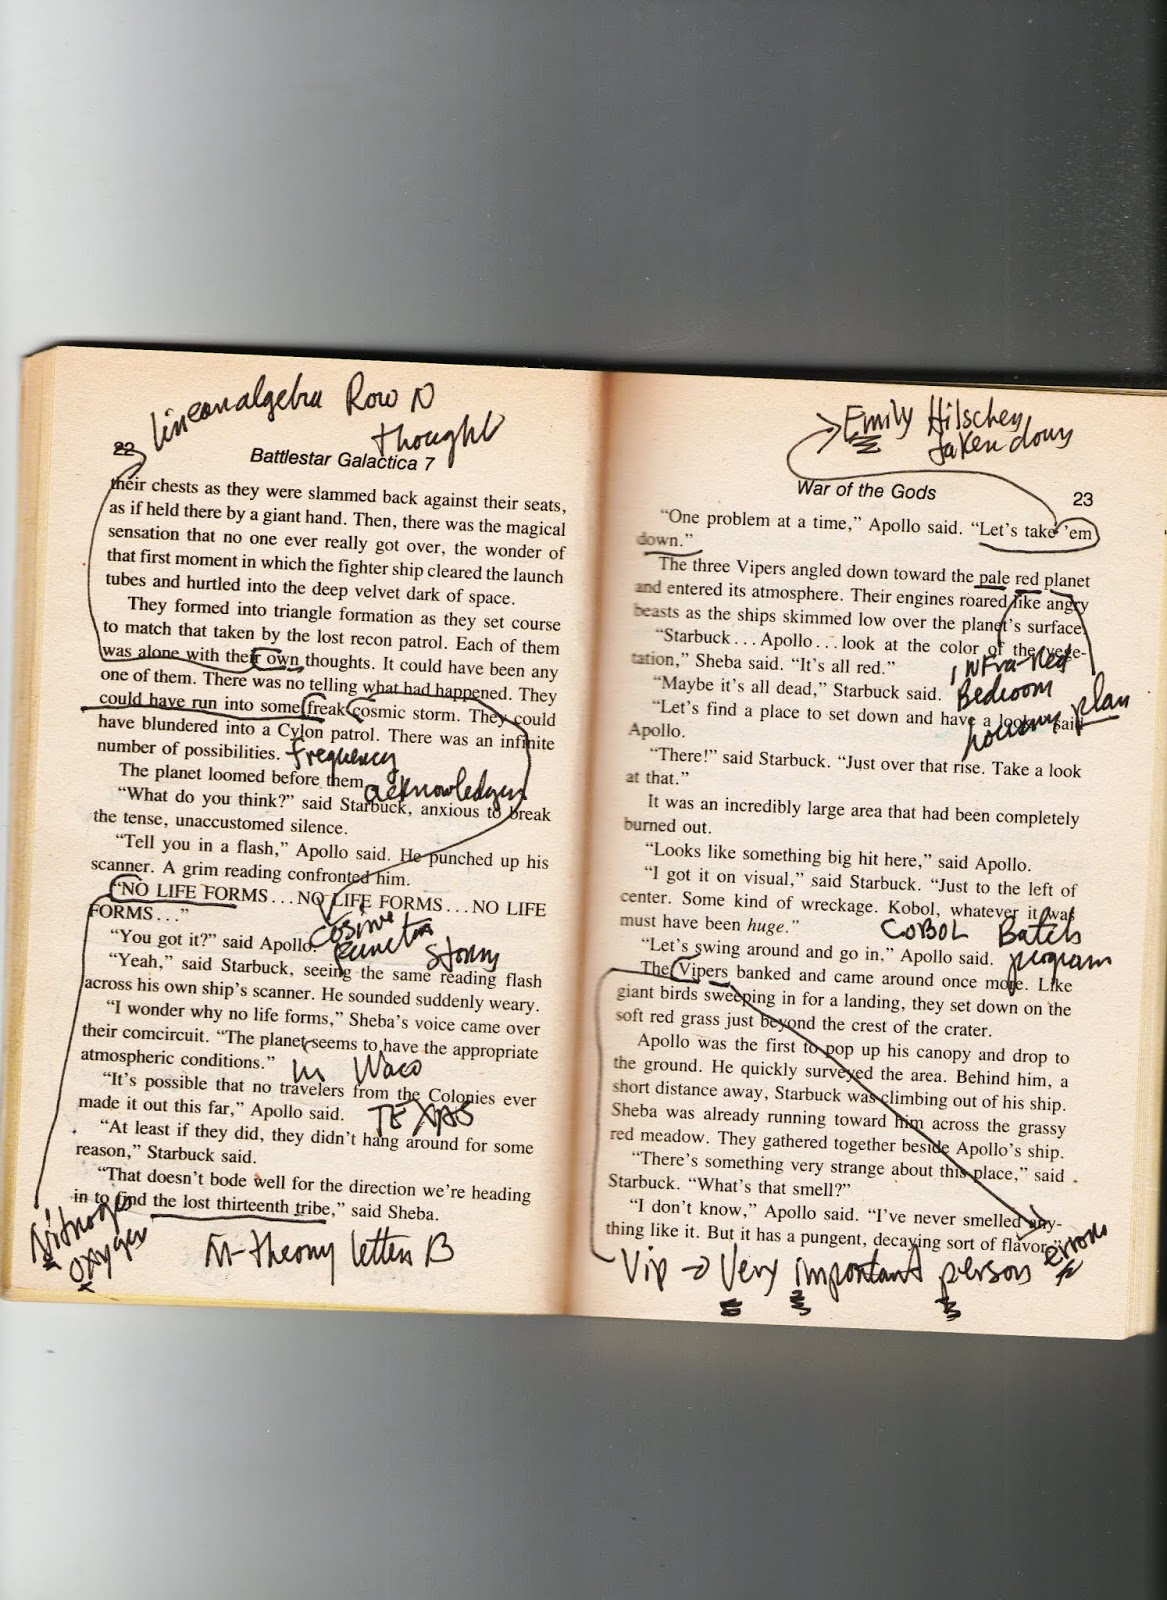 linearalgebra Row N
thought
22
Battlestar Galactica 7
their chests as they were slammed back against their seats,
as if held there by a giant hand. Then, there was the magical
sensation that no one ever really got over, the wonder of
that first moment in which the fighter ship cleared the launch
tubes and hurtled into the deep velvet dark of space.
They formed into triangle formation as they set course
to match that taken by the lost recon patrol. Each of them
was alone with their own thoughts. It could have been any
one of them. There was no telling what had happened. They
could have run into some freak cosmic storm. They could
have blundered into a Cylon patrol. There was an infinite
number of possibilities.
frequency
The planet loomed before them
acknowledges
“What do you think?” said Starbuck, anxious to break
the tense, unaccustomed silence.
“Tell you in a flash,” Apollo said. He punched up his
scanner. A grim reading confronted him.
“NO LIFE FORMS...NO LIFE FORMS...NO LIFE
FORMS...”
cosine
“You got it?” said Apollo.
function storms
“Yeah,” said Starbuck, seeing the same reading flash
across his own ship's scanner. He sounded suddenly weary.
“I wonder why no life forms,” Sheba's voice came over
their comcircuit. “The planet seems to have the appropriate
atmospheric conditions.”
in Waco
“It's possible that no travelers from the Colonies ever
made it out this far,” Apollo said.
TEXAS
“At least if they did, they didn't hang around for some
reason,” Starbuck said.
“That doesn't bode well for the direction we're heading
in to find the lost thirteenth tribe,” said Sheba.
Nitrogen
oxygen
M-theory letters B
Emily Hilscher
taken down
War of the Gods
23
“One problem at a time,” Apollo said. “Let's take 'em
down.”
The three Vipers angled down toward the pale red planet
and entered its atmosphere. Their engines roared like angry
beasts as the ships skimmed low over the planet's surface.
“Starbuck...Apollo...look at the color of the vege-
tation,” Sheba said. “It's all red.”
INFra-Red
“Maybe it's all dead,” Starbuck said.
Bedroom
plan
“Let's find a place to set down and have a look,” said
Apollo.
“There!” said Starbuck. “Just over that rise. Take a look
at that.”
It was an incredibly large area that had been completely
burned out.
“Looks like something big hit here,” said Apollo.
“I got it on visual,” said Starbuck. “Just to the left of
center. Some kind of wreckage. Kobol, whatever it was
must have been huge.”
COBOL Batch
program
“Let's swing around and go in,” Apollo said.
The Vipers banked and came around once more. Like
giant birds sweeping in for a landing, they set down on the
soft red grass just beyond the crest of the crater.
Apollo was the first to pop up his canopy and drop to
the ground. He quickly surveyed the area. Behind him, a
short distance away, Starbuck was climbing out of his ship.
Sheba was already running toward him across the grassy
red meadow. They gathered together beside Apollo's ship.
“There's something very strange about this place,” said
Starbuck. “What's that smell?”
“I don't know,” Apollo said. “I've never smelled any-
thing like it. But it has a pungent, decaying sort of flavor.”
errors
Vip → Very important person